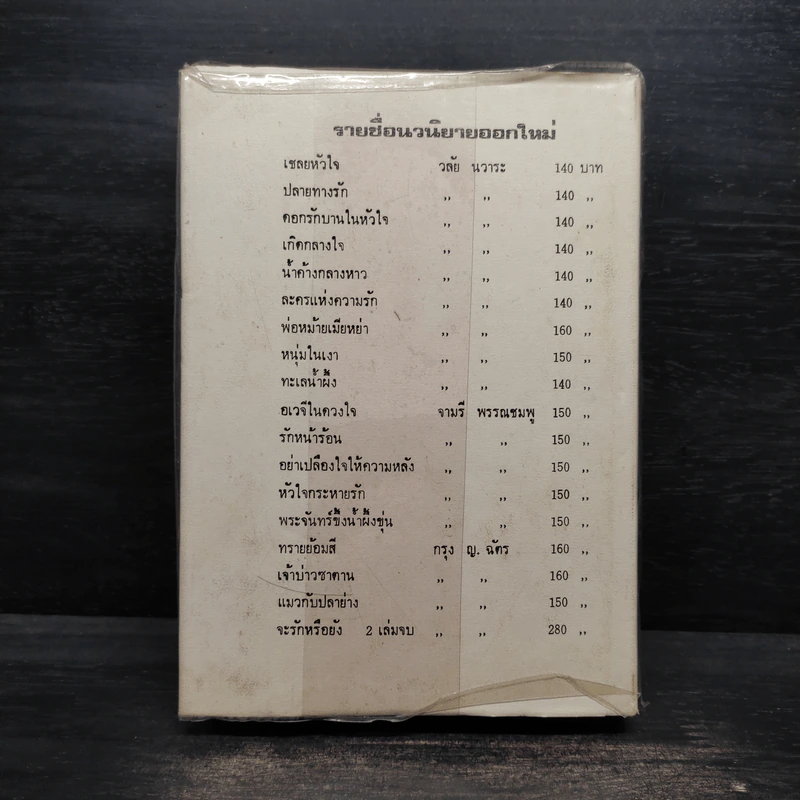 รายชื่อนวนิยายออกใหม่
เชลยหัวใจ วลัย นวาระ 140 บาท
ปลายทางรัก ,, ,, 140 ,,
ดอกรักบานในหัวใจ ,, ,, 140 ,,
เกิดกลางใจ ,, ,, 140 ,,
น้ำค้างกลางหาว ,, ,, 140 ,,
ละครแห่งความรัก ,, ,, 140 ,,
พ่อหม้ายเมียหย่า ,, ,, 160 ,,
หนุ่มในเงา ,, ,, 150 ,,
ทะเลน้ำผึ้ง ,, ,, 140 ,,
อเวจีในดวงใจ จามรี พรรณชมพู 150 ,,
รักหน้าร้อน ,, ,, 150 ,,
อย่าเปลืองใจให้ความหลัง ,, ,, 150 ,,
หัวใจกระหายรัก ,, ,, 150 ,,
พระจันทร์ขึ้งน้ำผึ้งขุ่น ,, ,, 150 ,,
ทรายย้อมสี กรุง ญ. ฉัตร 160 ,,
เจ้าบ่าวซาตาน ,, ,, 160 ,,
แมวกับปลาย่าง ,, ,, 150 ,,
จะรักหรือยัง 2 เล่มจบ ,, ,, 280 ,,